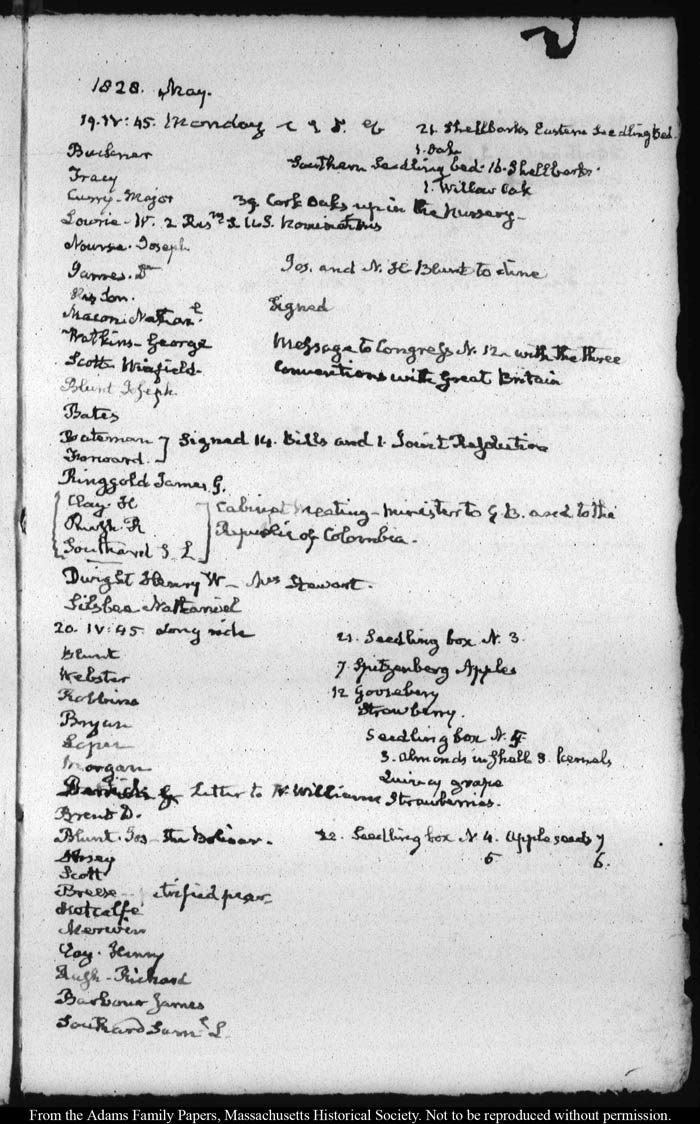 1828. May.
19. IV:45. Monday
21. Shellbarks Eastern Seedling bed.
1. Oak
Buckner
Southern Seedling bed. 16. Shellbarks.
Tracy
1. Willow Oak
Curry - Major
39. Cork Oaks up in the Nursery -
Lowrie - W. 2 Resns S U.S. Nominations
Nourse. Joseph
James. Dr
Jos. and N. Blunt to dine
His Son.
Signed
Macon. Nathanl.
Watkins - George
Message to Congress N. 12. with the three
Scott Winfield -
Conventions with Great Britain
Blunt Joseph.
Bates
Bateman
Signed 14. Bills and 1. Joint Resolution
Forward.
Ringgold James G.
Clay. H
Cabinet Meeting - Minister to G. B. and to the
Rush. R
Republic of Colombia.
Southard S. L.
Dwight Henry W - Mrs Stewart.
Silsbee Nathaniel
20. IV:45. Long ride
21. Seedling box N. 3.
Blunt
7. Spitzenberg Apples
Webster
12 Gooseberry
Robbins
Strawberry.
Bryan
Seedling box N. 4.
3. almonds in Shell 8. kernels
Morgan
Quincy grape
Letter to W. Williams
Strawberries.
Brent D.
Blunt. Jos - the Bolivar.
22. Seedling box N 4. Apple seeds 7
5 6.
Scott
Breese - petrified pear
Metcalfe
Merwin
Clay. Henry
Rush - Richard
Barbour James
Southard Saml L.
From the Adams Family Papers, Massachusetts Historical Society. Not to be reproduced without permission.